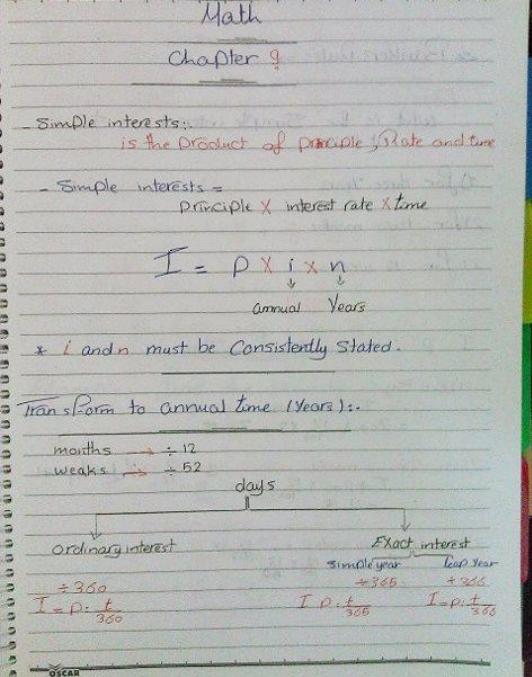 Math
Chapter 9
- Simple interests:.
is the product of principle, Rate and time
- Simple interests =
principle X interest rate X time
I = P X i X n
annual Years
* i and n must be Consistently Stated.
Transform to annual time (Years):.
months → ÷ 12
weaks → ÷ 52
days
Ordinary interest
Exact interest
Simple year leap year
÷360 ÷365 ÷366
I = P. t/360 I P. t/365 I = P. t/366
OSCAR